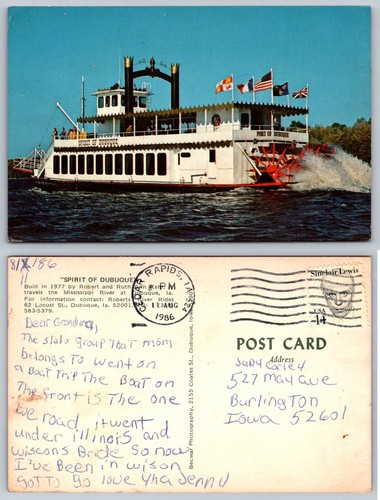 SPIRIT OF DUBUQUE
PORT OF DUBUQUE
8/11/86
"SPIRIT OF DUBUQUE"
Built in 1977 by Robert and Ruth
travels the Mississippi River at Dubuque, Ia.
For information contact: Roberts River Rides
62 Locust St., Dubuque, Ia. 52001
583-5379.
CEDAR RAPIDS, IA 524
PM
11 AUG
1986
Sinclair Lewis
USA
14
Dear Grandma,
The slots group That mom
belongs To went on
a Boat Trip The Boat on
The front is The one
we road, it went
under illinois and
wiscons Bride So now
I've Been in wison
gotta go love yha Jenny
Becwar Photography, 2155 Coates St., Dubuque,
POST CARD
Address
Judy Corley
527 May ave
Burlington
Iowa 52601